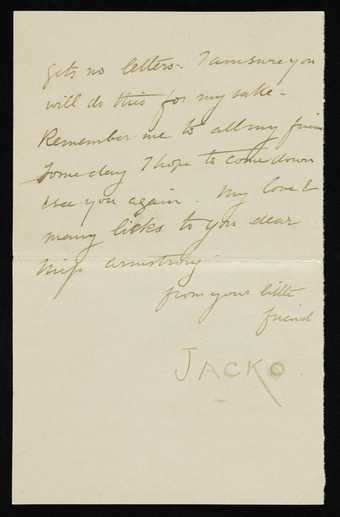 gets no letters - I am sure you
will do this for my sake -
Remember me to all my frien
Some day I hope to come down
& see you again. My love &
many licks to you dear
Miss Armstrong
from your little
friend
JACKO.